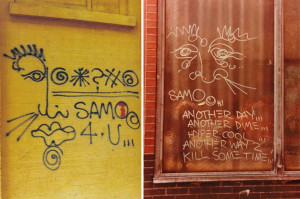 @*?X@
SAMO©
4·U,,,
SAMO©
ANOTHER DAY,,,
ANOTHER DIME,,,
HYPER COOL
ANOTHER WAY 2
KILL SOME TIME,,,